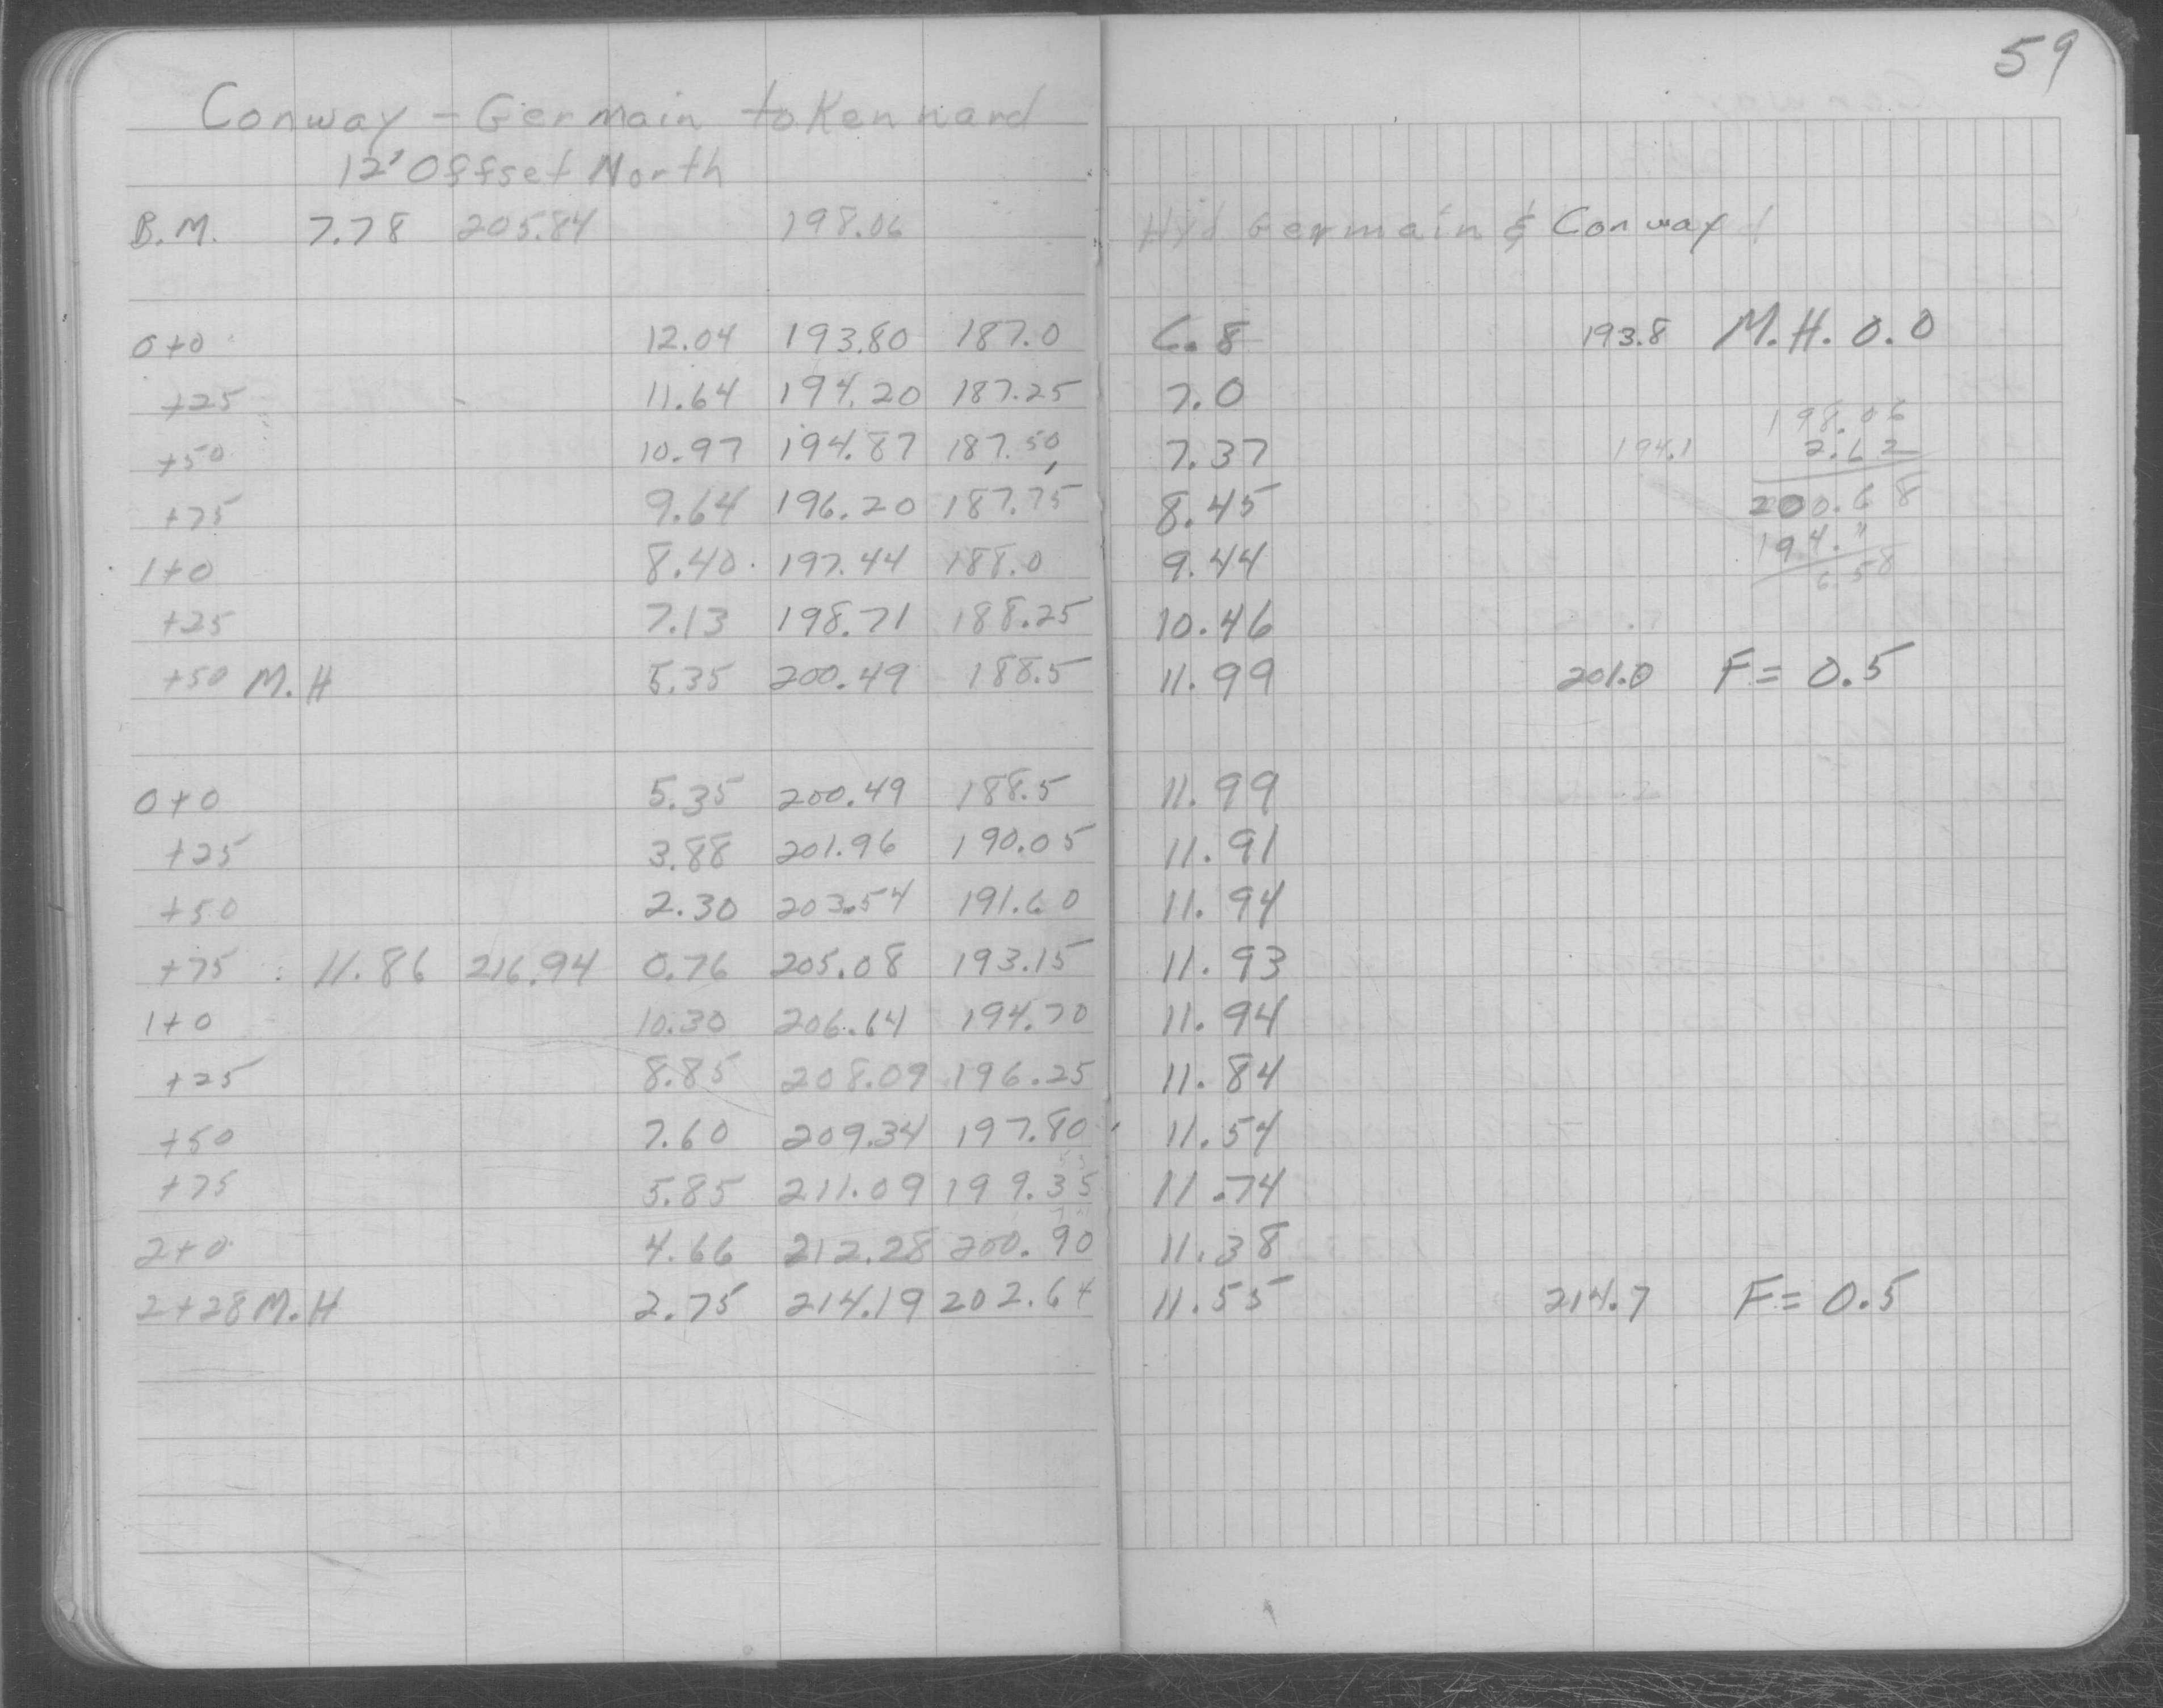 59
Conway - Germain to Kennard
12' Offset North
B.M. 7.78 205.84 198.06 Hyd Germain & Conway
0+0 12.04 193.80 187.0 6.8 193.8 M.H. 0.0
+25 11.64 194.20 187.25 7.0
198.06
+50 10.97 194.87 187.50 7.37 194.1 2.62
+75 9.64 196.20 187.75 8.45 200.68
194."
1+0 8.40 197.44 188.0 9.44 6.58
+25 7.13 198.71 188.25 10.46
+50 M.H 5.35 200.49 188.5 11.99 201.0 F = 0.5
0+0 5.35 200.49 188.5 11.99
+25 3.88 201.96 190.05 11.91
+50 2.30 203.54 191.60 11.94
+75 11.86 216.94 0.76 205.08 193.15 11.93
1+0 10.30 206.64 194.70 11.94
+25 8.85 208.09 196.25 11.84
+50 7.60 209.34 197.80 11.54
+75 5.85 211.09 199.35 11.74
2+0 4.66 212.28 200.90 11.38
2+28 M.H 2.75 214.19 202.64 11.55 214.7 F = 0.5